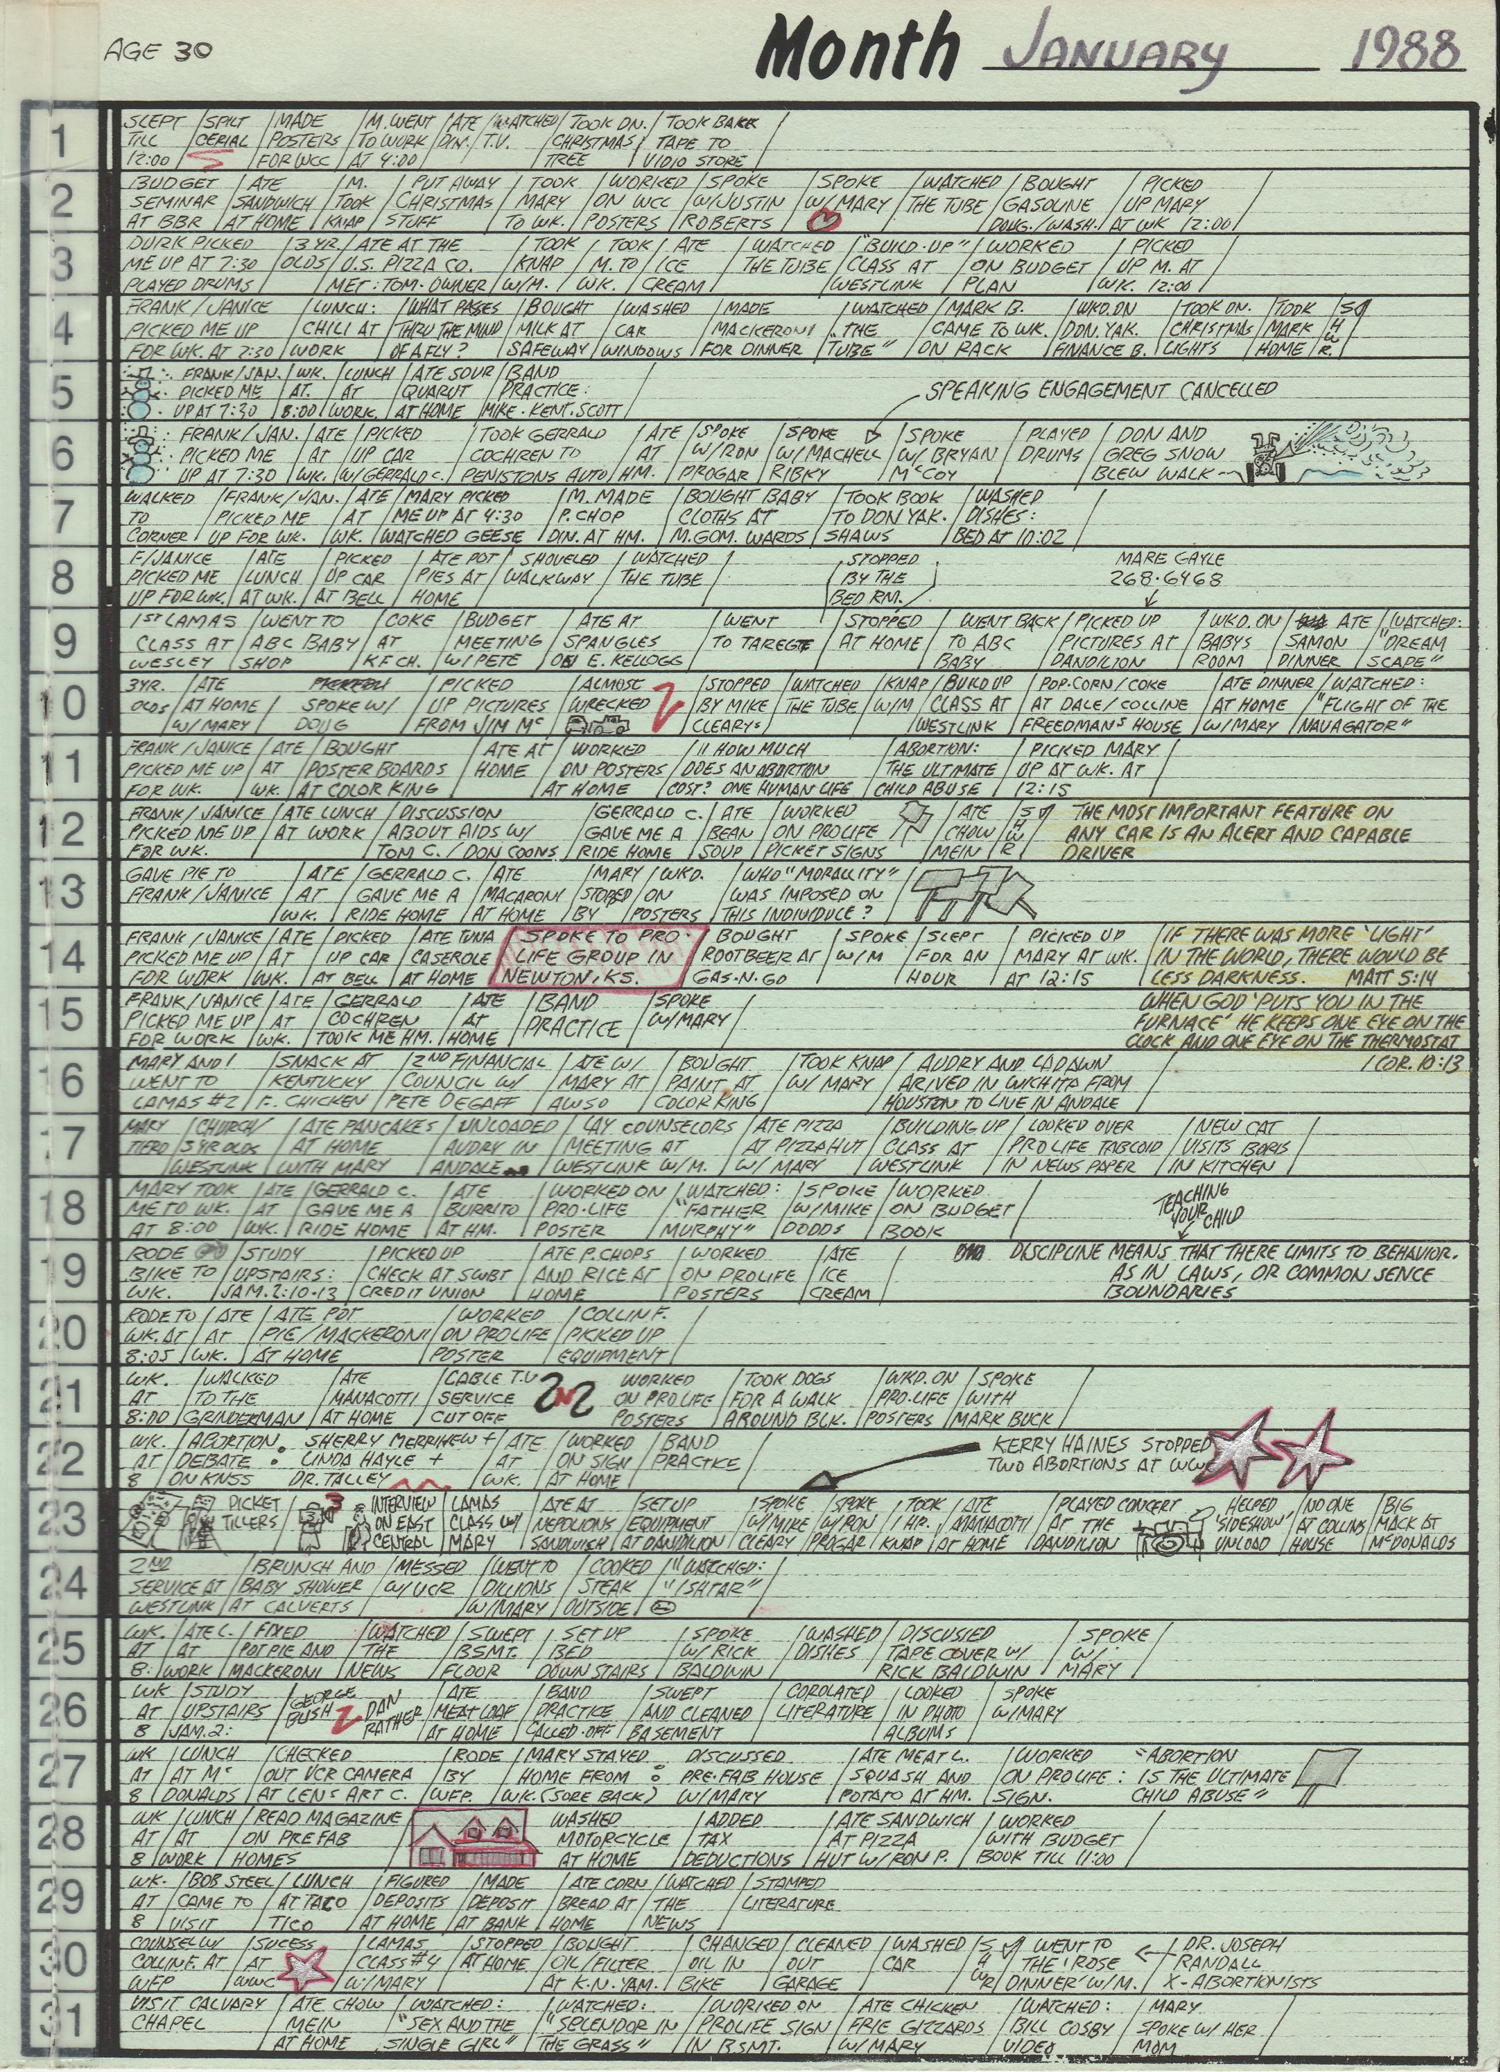 AGE 30
Month JANUARY 1988
1
SLEPT TILL 12:00 / SPILT CERIAL / MADE POSTERS FOR WCC / M. WENT TO WORK AT 4:00 / ATE DIN. / WATCHED T.V. / TOOK DN. CHRISTMAS TREE / TOOK BAKK TAPE TO VIDIO STORE /
2
BUDGET SEMINAR AT BBR / ATE SANDWICH AT HOME / M. TOOK KNAP / PUT AWAY CHRISTMAS STUFF / TOOK MARY TO WK. / WORKED ON WCC POSTERS / SPOKE W/JUSTIN ROBERTS / SPOKE W/MARY / WATCHED THE TUBE / BOUGHT GASOLINE DOUG./WASH. / PICKED UP MARY AT WK 12:00 /
3
DURK PICKED ME UP AT 7:30 PLAYED DRUMS / 3 YR. OLDS / ATE AT THE U.S. PIZZA CO. MET: TOM-OWNER / TOOK KNAP W/M. / TOOK M. TO WK. / ATE ICE CREAM / WATCHED THE TUBE / "BUILD-UP" CLASS AT WESTLINK / WORKED ON BUDGET PLAN / PICKED UP M. AT WK. 12:00 /
4
FRANK/JANICE PICKED ME UP FOR WK. AT 7:30 / LUNCH: CHILI AT WORK / WHAT PASSES THRU THE MIND OF A FLY? / BOUGHT MILK AT SAFEWAY / WASHED CAR WINDOWS / MADE MACKERONI FOR DINNER / WATCHED THE "TUBE" / MARK B. CAME TO WK. ON RACK / WKD. ON DON. YAK. FINANCE B. / TOOK DN. CHRISTMAS LIGHTS / TOOK MARK HOME / SHWR.
5
FRANK/JAN. PICKED ME UP AT 7:30 / WK. AT. 8:00 / LUNCH AT WORK. / ATE SOUR QUARUT AT HOME / BAND PRACTICE: MIKE-KENT-SCOTT /
SPEAKING ENGAGEMENT CANCELLED
6
FRANK/JAN. PICKED ME UP AT 7:30 / ATE AT WK. / PICKED UP CAR W/GERRALD C. / TOOK GERRALD COCHREN TO PENISTONS AUTO / ATE AT HM. / SPOKE W/RON PROGAR / SPOKE W/MACHELL RIBKY / SPOKE W/BRYAN McCOY / PLAYED DRUMS / DON AND GREG SNOW BLEW WALK
7
WALKED TO CORNER / FRANK/JAN. PICKED ME UP FOR WK. / ATE AT WK. / MARY PICKED ME UP AT 4:30 WATCHED GEESE / M. MADE P. CHOP DIN. AT HM. / BOUGHT BABY CLOTHS AT M.GOM. WARDS / TOOK BOOK TO DON YAK. SHAWS / WASHED DISHES: BED AT 10:02 /
8
F/JANICE PICKED ME UP FOR WK. / ATE LUNCH AT WK. / PICKED UP CAR AT BELL / ATE POT PIES AT HOME / SHOVELED WALKWAY / WATCHED THE TUBE / STOPPED BY THE BED RM. /
MARE GAYLE 268-6468
9
1ST LAMAS CLASS AT WESLEY / WENT TO ABC BABY SHOP / COKE AT KF CH. / BUDGET MEETING W/PETE / ATE AT SPANGLES ON E. KELLOGG / WENT TO TAREGTE / STOPPED AT HOME / WENT BACK TO ABC BABY / PICKED UP PICTURES AT DANDILION / WKD. ON BABYS ROOM / ATE SAMON DINNER / WATCHED: "DREAM SCAPE"
10
3YR. OLDS / ATE AT HOME W/MARY / SPOKE W/ DOUG / PICKED UP PICTURES FROM JIM Mc / ALMOST WRECKED / STOPPED BY MIKE CLEARYS / WATCHED THE TUBE / KNAP W/M / BUILD UP CLASS AT WESTLINK / POP-CORN/COKE AT DALE/COLLINE FREEDMAN'S HOUSE / ATE DINNER AT HOME W/MARY / WATCHED: "FLIGHT OF THE NAVAGATOR"
11
FRANK/JANICE PICKED ME UP FOR WK. / ATE AT WK. / BOUGHT POSTER BOARDS AT COLOR KING / ATE AT HOME / WORKED ON POSTERS AT HOME / "HOW MUCH DOES AN ABORTION COST? ONE HUMAN LIFE / ABORTION: THE ULTIMATE CHILD ABUSE / PICKED MARY UP AT WK. AT 12:15 /
12
FRANK/JANICE PICKED ME UP FOR WK. / ATE LUNCH AT WORK / DISCUSSION ABOUT AIDS W/ TOM C./DON COONS / GERRALD C. GAVE ME A RIDE HOME / ATE BEAN SOUP / WORKED ON PROLIFE PICKET SIGNS / ATE CHOW MEIN / SHWR /
THE MOST IMPORTANT FEATURE ON ANY CAR IS AN ALERT AND CAPABLE DRIVER
13
GAVE PIE TO FRANK/JANICE / ATE AT WK. / GERRALD C. GAVE ME A RIDE HOME / ATE MACARONI AT HOME / MARY STOPED BY / WKD. ON POSTERS / WHO "MORALITY" WAS IMPOSED ON THIS INDIVIDULE? /
14
FRANK/JANICE PICKED ME UP FOR WORK / ATE AT WK. / PICKED UP CAR AT BELL / ATE TUNA CASEROLE AT HOME / SPOKE TO PRO-LIFE GROUP IN NEWTON, KS. / BOUGHT ROOTBEER AT GAS-N-GO / SPOKE W/M / SLEPT FOR AN HOUR / PICKED UP MARY AT WK. AT 12:15 /
IF THERE WAS MORE 'LIGHT' IN THE WORLD, THERE WOULD BE LESS DARKNESS. MATT 5:14
15
FRANK/JANICE PICKED ME UP FOR WORK / ATE AT WK. / GERRALD COCHREN TOOK ME HM. / ATE AT HOME / BAND PRACTICE / SPOKE W/MARY /
WHEN GOD 'PUTS YOU IN THE FURNACE' HE KEEPS ONE EYE ON THE CLOCK AND ONE EYE ON THE THERMOSTAT
1 COR. 10:13
16
MARY AND I WENT TO LAMAS #2 / SNACK AT KENTUCKY F. CHICKEN / 2ND FINANCIAL COUNCIL W/ PETE DEGAFF / ATE W/ MARY AT ALWSO / BOUGHT PAINT AT COLOR KING / TOOK KNAP W/MARY / AUDRY AND LADAWN ARIVED IN WICHITA FROM HOUSTON TO LIVE IN ANDALE
17
MARY TIERD / CHURCH/ 3YR OLDS WESTLINK / ATE PANCAKES AT HOME WITH MARY / UNLOADED AUDRY IN ANDALE / LAY COUNSELORS MEETING AT WESTLINK W/M. / ATE PIZZA AT PIZZA HUT W/MARY / BUILDING UP CLASS AT WESTLINK / LOOKED OVER PRO LIFE TABCOID IN NEWS PAPER / NEW CAT VISITS BORIS IN KITCHEN /
18
MARY TOOK ME TO WK. AT 8:00 / ATE AT WK. / GERRALD C. GAVE ME A RIDE HOME / ATE BURRITO AT HM. / WORKED ON PRO-LIFE POSTER / WATCHED: "FATHER MURPHY" / SPOKE W/MIKE DODDS / WORKED ON BUDGET BOOK /
TEACHING YOUR CHILD
19
RODE BIKE TO WK. / STUDY UPSTAIRS: JAM. 2:10-13 / PICKED UP CHECK AT SWBT CREDIT UNION / ATE P. CHOPS AND RICE AT HOME / WORKED ON PROLIFE POSTERS / ATE ICE CREAM /
DISCIPLINE MEANS THAT THERE LIMITS TO BEHAVIOR. AS IN LAWS, OR COMMON SENCE BOUNDARIES
20
RODE TO WK. AT 8:05 / ATE AT WK. / ATE POT PIE/MACKERONI AT HOME / WORKED ON PROLIFE POSTER / COLLIN F. PICKED UP EQUIPMENT /
21
WK. AT 8:00 / WALKED TO THE GRINDERMAN / ATE MANACOTTI AT HOME / CABLE T.V. SERVICE CUT OFF / WORKED ON PRO LIFE POSTERS / TOOK DOGS FOR A WALK AROUND BLK. / WKD. ON PRO-LIFE POSTERS / SPOKE WITH MARK BUCK /
22
WK. AT 8 / ABORTION DEBATE ON KNSS : SHERRY MERRIHEW + LINDA HAYLE + DR. TALLEY / ATE AT WK. / WORKED ON SIGN AT HOME / BAND PRACTICE /
KERRY HAINES STOPPED TWO ABORTIONS AT WWC
23
PICKET TILLERS / INTERVIEW ON EAST CENTRAL / LAMAS CLASS W/ MARY / ATE AT NEPOLIONS SANDWISH / SET UP EQUIPMENT AT DANDILION / SPOKE W/MIKE CLEARY / SPOKE W/RON PROGAR / TOOK 1 HR. KNAP / ATE MANACOTTI AT HOME / PLAYED CONCERT AT THE DANDILION / HELPED 'SIDESHOW' UNLOAD / NO ONE AT COLLINS HOUSE / BIG MACK AT McDONALDS
24
2ND SERVICE AT WESTLINK / BRUNCH AND BABY SHOWER AT CALVERTS / MESSED W/VCR / WENT TO DILLIONS W/MARY / COOKED STEAK OUTSIDE / WATCHED: "ISHTAR" /
25
WK. AT 8: / ATE L. AT WORK / FIXED POT PIE AND MACKERONI / WATCHED THE NEWS / SWEPT BSMT. FLOOR / SET UP BED DOWN STAIRS / SPOKE W/RICK BALDWIN / WASHED DISHES / DISCUSSED TAPE COVER W/ RICK BALDWIN / SPOKE W/ MARY /
26
WK AT 8 / STUDY UPSTAIRS JAM. 2: / GEORGE BUSH DAN RATHER / ATE MEAT LOAF AT HOME / BAND PRACTICE CALLED-OFF / SWEPT AND CLEANED BASEMENT / COROLATED LITERATURE / LOOKED IN PHOTO ALBUMS / SPOKE W/MARY
27
WK AT 8 / LUNCH AT Mc DONALDS / CHECKED OUT VCR CAMERA AT LENS ART C. / RODE BY WFP. / MARY STAYED HOME FROM WK. (SORE BACK) : DISCUSSED PRE-FAB HOUSE W/MARY / ATE MEAT L. SQUASH AND POTATO AT HM. / WORKED ON PROLIFE SIGN. : "ABORTION IS THE ULTIMATE CHILD ABUSE"
28
WK AT 8 / LUNCH AT WORK / READ MAGAZINE ON PREFAB HOMES / WASHED MOTORCYCLE AT HOME / ADDED TAX DEDUCTIONS / ATE SANDWICH AT PIZZA HUT W/RON P. / WORKED WITH BUDGET BOOK TILL 11:00 /
29
WK. AT 8 / BOB STEEL CAME TO VISIT / LUNCH AT TACO TICO / FIGURED DEPOSITS AT HOME / MADE DEPOSIT AT BANK / ATE CORN BREAD AT HOME / WATCHED THE NEWS / STAMPED LITERATURE
30
COUNSEL W/ COLLINE AT WFP / SUCESS AT WWC / LAMAS CLASS #4 W/MARY / STOPPED AT HOME / BOUGHT OIL/FILTER AT K.N. YAM. / CHANGED OIL IN BIKE / CLEANED OUT GARAGE / WASHED CAR / SHWR / WENT TO THE 'ROSE' DINNER W/M. / DR. JOSEPH RANDALL X-ABORTIONISTS
31
VISIT CALVARY CHAPEL / ATE CHOW MEIN AT HOME / WATCHED: "SEX AND THE SINGLE GIRL" / WATCHED: "SPLENDOR IN THE GRASS" / WORKED ON PROLIFE SIGN IN BSMT. / ATE CHICKEN FRIE GIZZARDS W/MARY / WATCHED: BILL COSBY VIDEO / MARY SPOKE W/HER MOM /